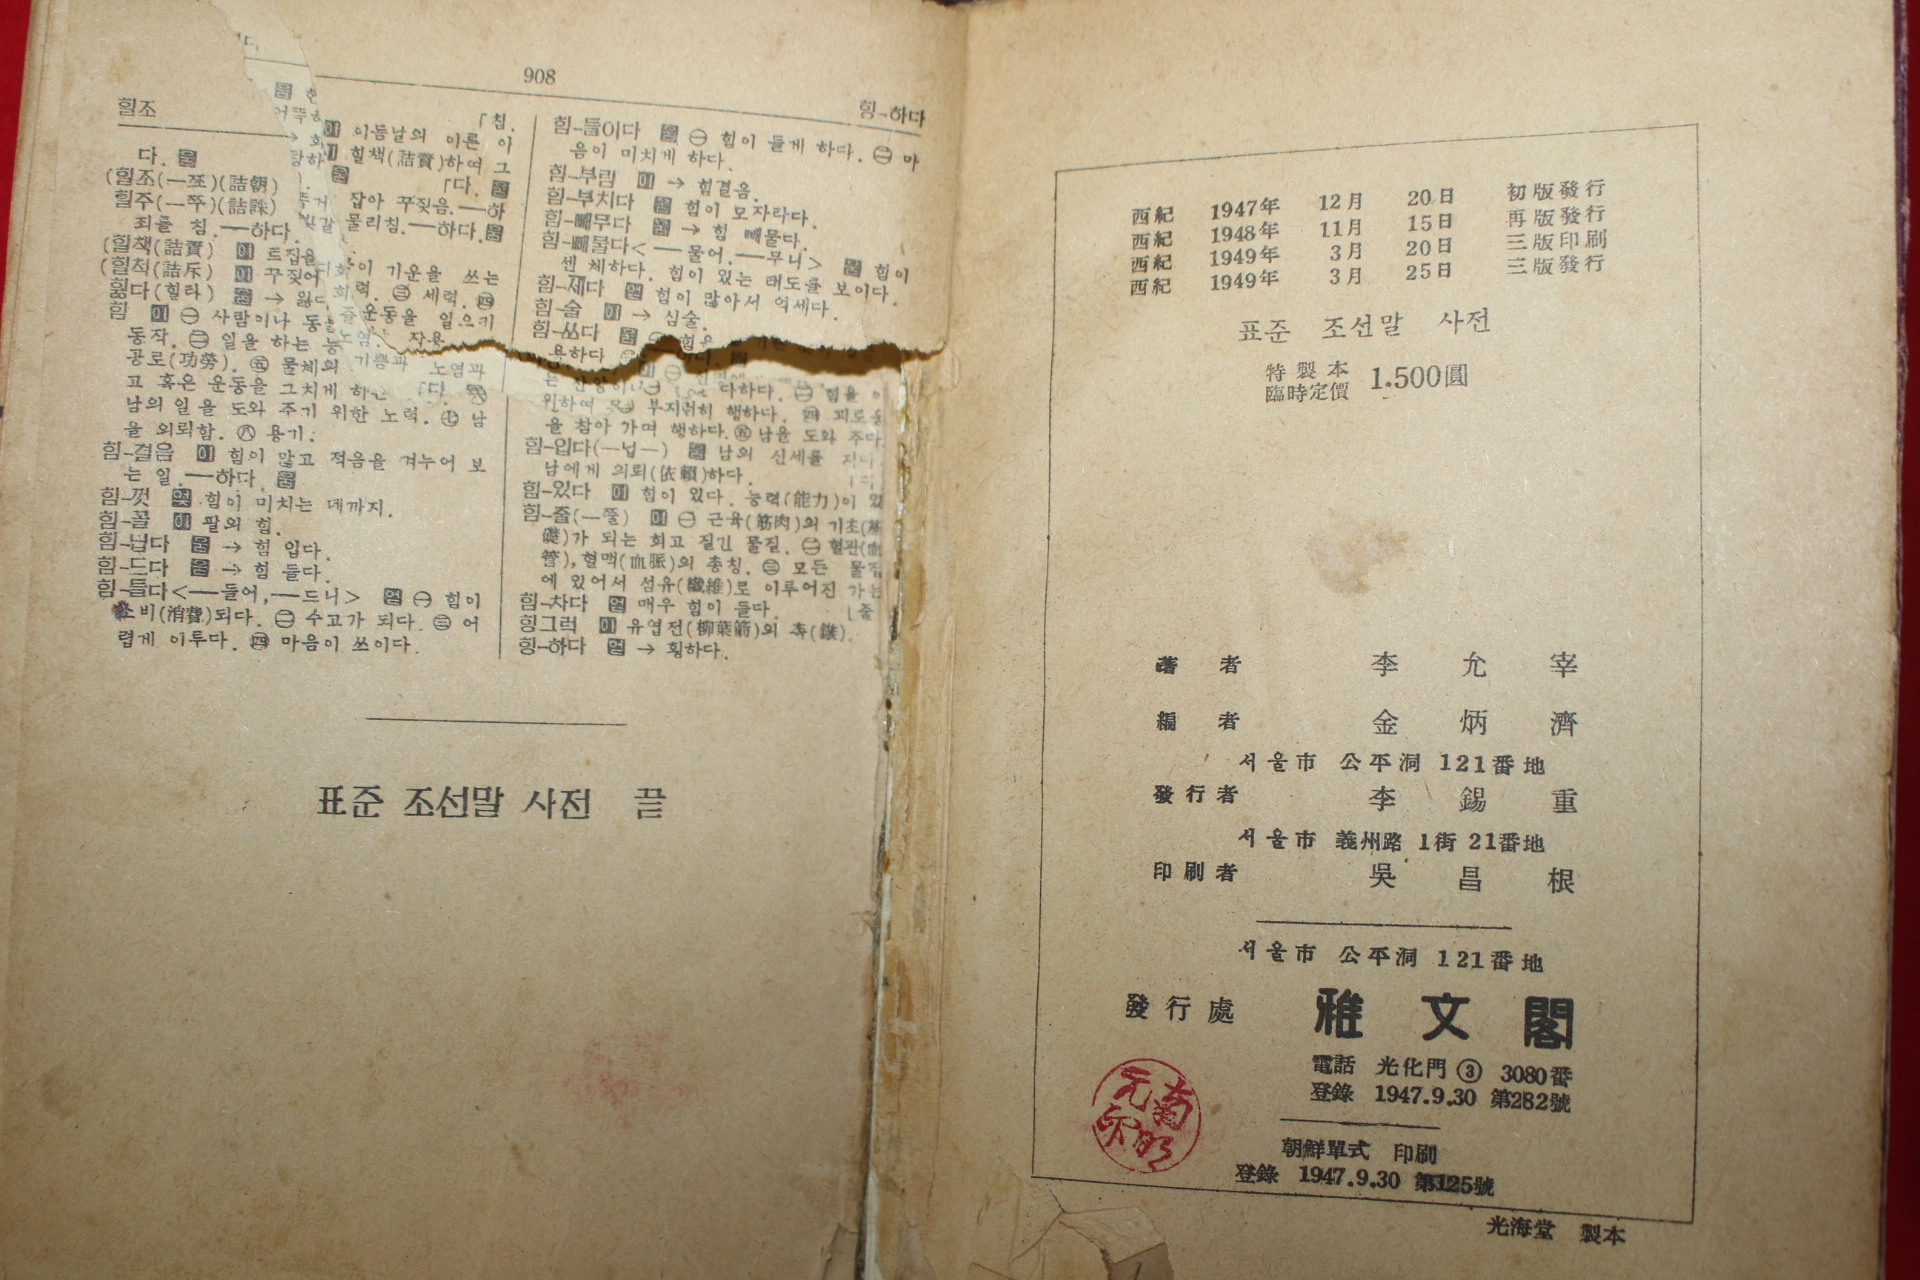 908
힐조
힝-하다
다.
(힐조(一쪼)(詰朝)
힐주(一쭈)(詰誅)
죄를 침.──하다.
(힐책(詰責) 이 트집을
(힐척(詰斥) 이 꾸짖어
힗다(힐라)
힘 이 ㊀ 사람이나
동작. ㊁ 일을 하는
공로(功勞). ㊄ 물체의
고 혹은 운동을 그치게
남의 일을 도와 주기 위한 노력. ㊆ 남
을 외뢰함. ㊇ 용기.
힘-결음 이 힘이 많고 적음을 겨누어 보
는 일.──하다. 움
힘-껏 엇 힘이 미치는 데까지.
힘-꼴 이 팔의 힘.
힘-닙다 움 → 힘 입다.
힘-드다 움 → 힘 들다.
힘-들다<──들어,──드니> 얻 ㊀ 힘이
소비(消費)되다. ㊁ 수고가 되다. ㊂ 어
렵게 이루다. ㊃ 마음이 쓰이다.
「침.
이 이듬날의 이른 아
힐책(詰責)하여 그
「다. 움
잡아 꾸짖음.──하
물리침.──하다. 움
이 기운을 쓰는
력. ㊂ 세력. ㊃
운동을 일으키
힘-들이다 움 ㊀ 힘이 들게 하다. ㊁ 마
음이 미치게 하다.
힘-부림 이 → 힘결음.
힘-부치다 움 힘이 모자라다.
힘-빼무다 움 → 힘 빼물다.
힘-빼물다<──물어,──무니> 움 힘이
센 체하다. 힘이 있는 태도를 보이다.
힘-제다 얻 힘이 많아서 억세다.
힘-술 이 → 심술.
힘-쓰다 움
용하다
위하여 부지런히 행하다. ㊃ 괴로움
을 참아 가며 행하다. ㊄ 남을 도와 주다.
힘-입다(一닙一) 움 남의 신세를 지다.
남에게 의뢰(依賴)하다.
힘-있다 이 힘이 있다. 능력(能力)이 있
힘-줄(一쭐) 이 ㊀ 근육(筋肉)의 기초(基
礎)가 되는 희고 질긴 물질. ㊁ 혈관(血
管), 혈맥(血脈)의 총칭. ㊂ 모든 물질
에 있어서 섬유(纖維)로 이루어진 가는
힘-차다 얻 매우 힘이 들다. [줄
힝그럭 이 유엽전(柳葉箭)의 촉(鏃).
힝-하다 얻 → 횡하다.
표준 조선말 사전 끝
西紀 1947年 12月 20日 初版發行
西紀 1948年 11月 15日 再版發行
西紀 1949年 3月 20日 三版印刷
西紀 1949年 3月 25日 三版發行
표준 조선말 사전
特製本
臨時定價 1.500圓
著者 李允宰
編者 金炳濟
서울市 公平洞 121番地
發行者 李錫重
서울市 義州路 1街 21番地
印刷者 吳昌根
서울市 公平洞 121番地
發行處 雅文閣
電話 光化門 ③ 3080番
登錄 1947.9.30 第282號
朝鮮單式 印刷
登錄 1947.9.30 第125號
光海堂 製本